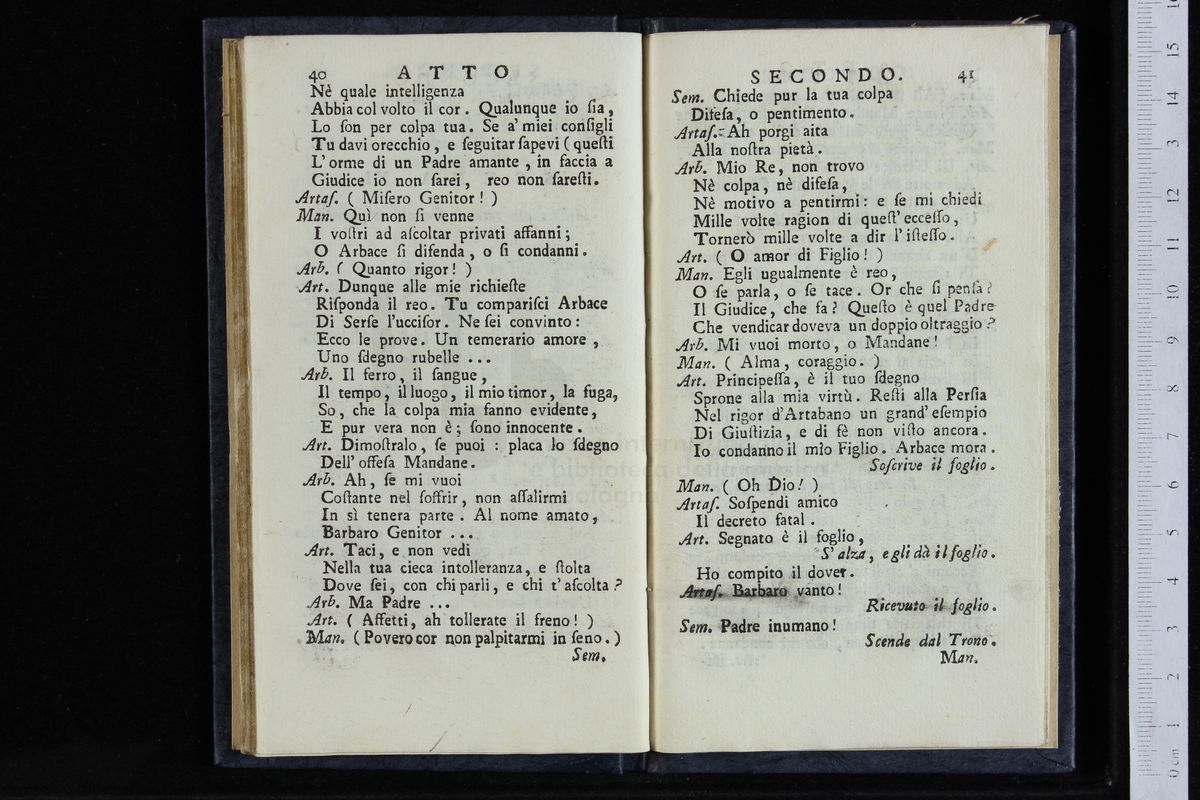 40 ATTO
Nè quale intelligenza
Abbia col volto il cor. Qualunque io ſia,
Lo ſon per colpa tua. Se a' miei conſigli
Tu davi orecchio, e ſeguitar ſapevi (queſti
L' orme di un Padre amante, in faccia a
Giudice io non ſarei, reo non ſareſti.
Artaſ. ( Miſero Genitor! )
Man. Quì non ſi venne
I voſtri ad aſcoltar privati affanni;
O Arbace ſi difenda, o ſi condanni.
Arb. ( Quanto rigor! )
Art. Dunque alle mie richieſte
Riſponda il reo. Tu compariſci Arbace
Di Serſe l'ucciſor. Ne ſei convinto:
Ecco le prove. Un temerario amore,
Uno ſdegno rubelle ...
Arb. Il ferro, il ſangue,
Il tempo, il luogo, il mio timor, la fuga,
So, che la colpa mia fanno evidente,
E pur vera non è; ſono innocente.
Art. Dimoſtralo, ſe puoi : placa lo ſdegno
Dell' offeſa Mandane.
Arb. Ah, ſe mi vuoi
Coſtante nel ſoffrir, non aſſalirmi
In sì tenera parte. Al nome amato,
Barbaro Genitor ...
Art. Taci, e non vedi
Nella tua cieca intolleranza, e ſtolta
Dove ſei, con chi parli, e chi t' aſcolta?
Arb. Ma Padre ...
Art. ( Affetti, ah tollerate il freno! )
Man. (Povero cor non palpitarmi in ſeno.)
Sem.
SECONDO. 41
Sem. Chiede pur la tua colpa
Difeſa, o pentimento.
Artaſ. Ah porgi aita
Alla noſtra pietà.
Arb. Mio Re, non trovo
Nè colpa, nè difeſa,
Nè motivo a pentirmi: e ſe mi chiedi
Mille volte ragion di queſt' ecceſſo,
Tornerò mille volte a dir l' iſteſſo.
Art. ( O amor di Figlio! )
Man. Egli ugualmente è reo,
O ſe parla, o ſe tace. Or che ſi penſa?
Il Giudice, che fa? Queſto è quel Padre
Che vendicar doveva un doppio oltraggio?
Arb. Mi vuoi morto, o Mandane!
Man. ( Alma, coraggio. )
Art. Principeſſa, è il tuo ſdegno
Sprone alla mia virtù. Reſti alla Perſia
Nel rigor d'Artabano un grand' eſempio
Di Giuſtizia, e di fè non viſto ancora.
Io condanno il mio Figlio. Arbace mora.
Soſcrive il foglio.
Man. ( Oh Dio! )
Artaſ. Soſpendi amico
Il decreto fatal.
Art. Segnato è il foglio,
S' alza, e gli dà il foglio.
Ho compito il dover.
Artaſ. Barbaro vanto!
Ricevuto il foglio.
Sem. Padre inumano!
Scende dal Trono.
Man.